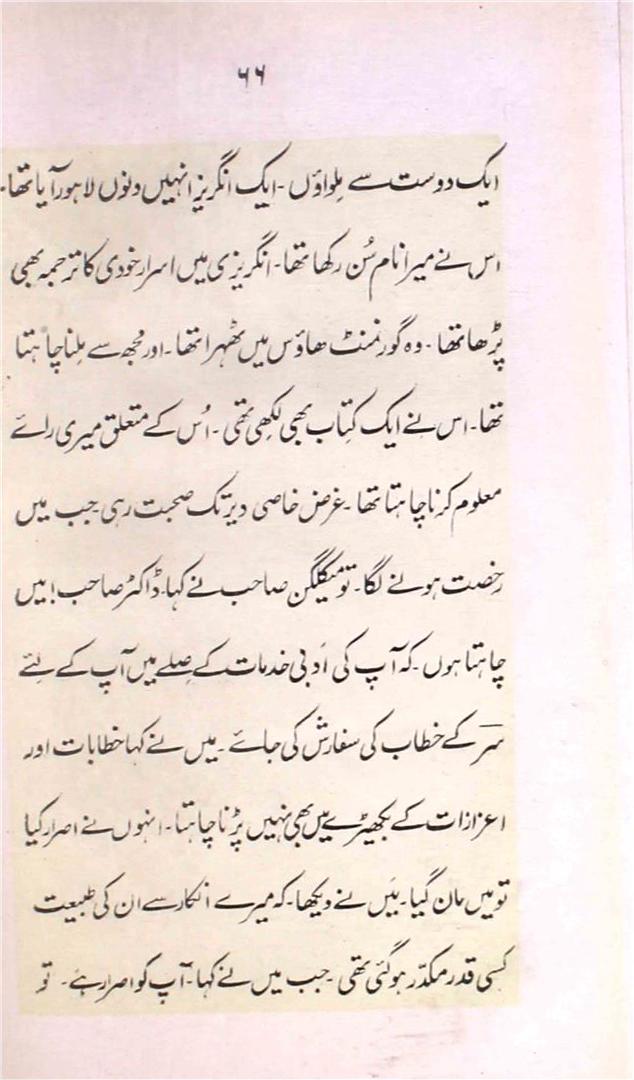 ۶۶
ایک دوست سے مِلواؤں - ایک انگریز انہیں دنوں لاہور آیا تھا -
اس نے میرا نام سُن رکھا تھا - انگریزی میں اسرار خودی کا ترجمہ بھی
پڑھا تھا - وہ گورنمنٹ ھاؤس میں ٹھہرا تھا - اور مجھ سے مِلنا چاہتا
تھا - اس نے ایک کتاب بھی لکھی تھی - اُس کے متعلق میری رائے
معلوم کرنا چاہتا تھا - غرض خاصی دیر تک صحبت رہی - جب میں
رخصت ہونے لگا - تو میکلیگن صاحب نے کہا - ڈاکٹر صاحب ! میں
چاہتا ہوں - کہ آپ کی اَدبی خدمات کے صِلے میں آپ کے لئے
سَر کے خطاب کی سفارش کی جائے - میں نے کہا خطابات اور
اعزازات کے بکھیڑے میں بھی نہیں پڑنا چاہتا - انہوں نے اصرار کیا
تو میں مان گیا - میَں نے دیکھا - کہ میرے انکار سے ان کی طبیعت
کسی قدر مکدّر ہو گئی تھی - جب میں نے کہا - آپ کو اصرار ہے - تو